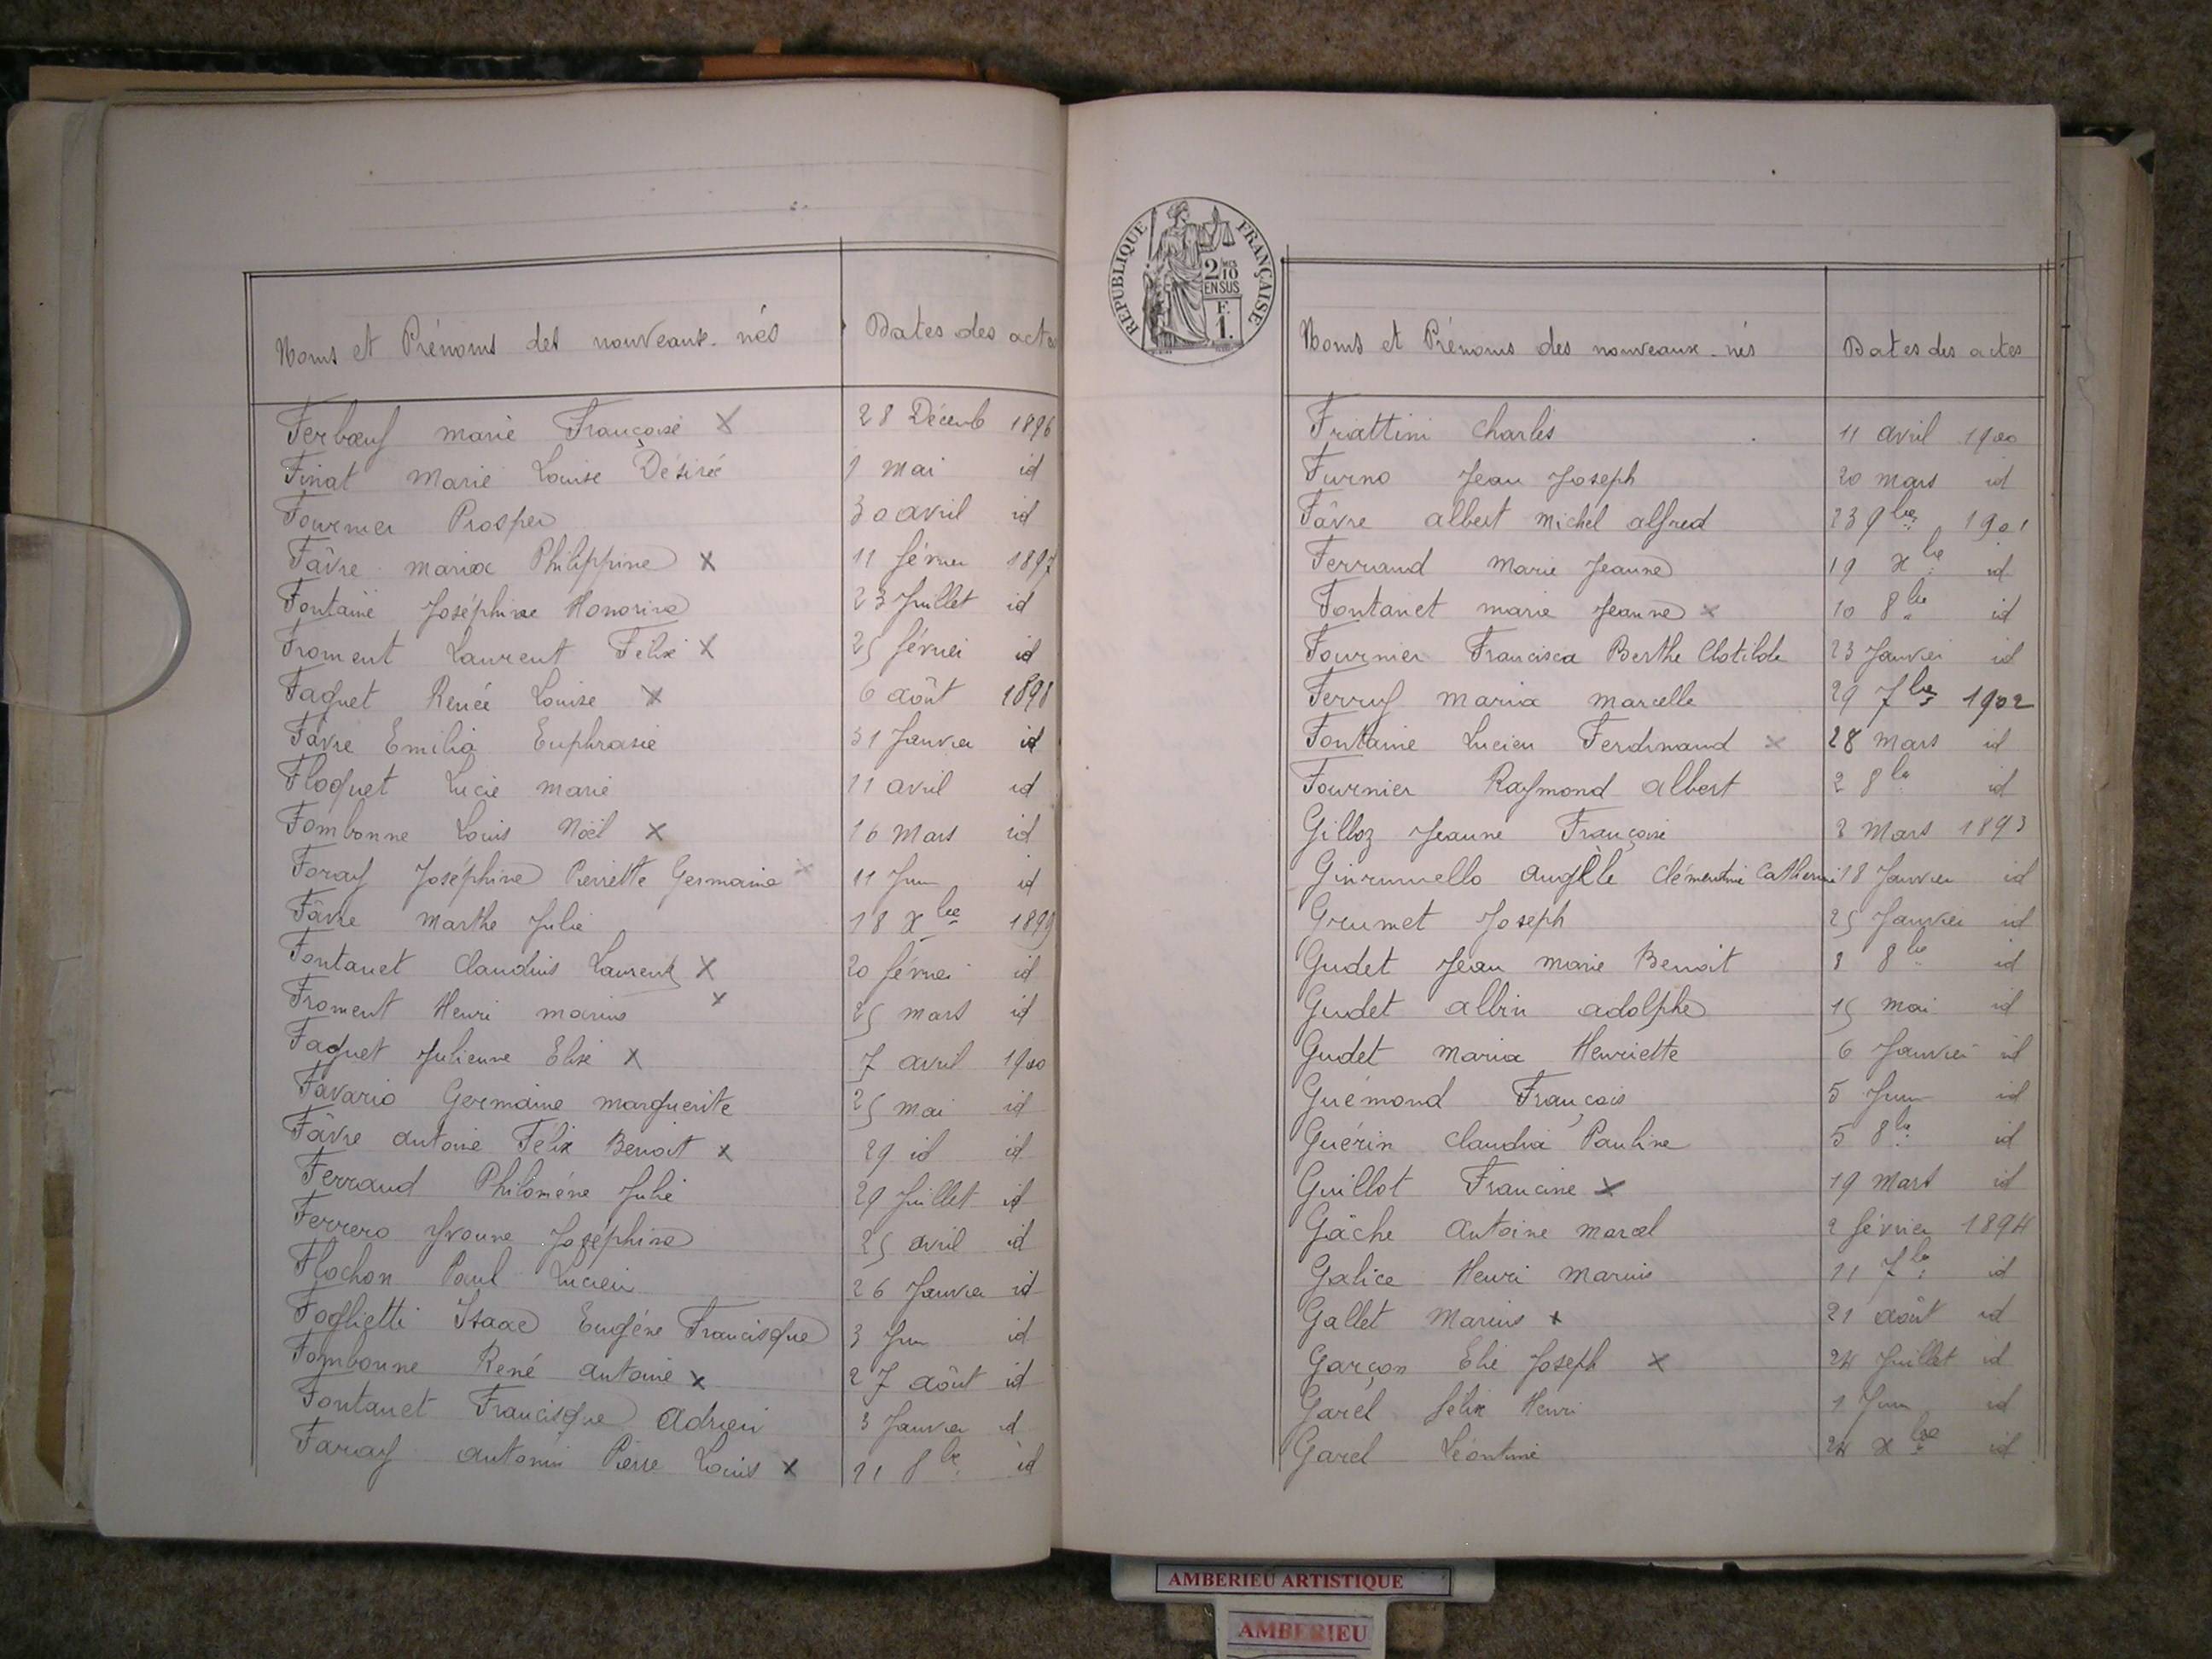 Noms et Prénoms des nouveaux-nés Dates des actes
Ferbœuf marie Françoise x 28 Décemb 1896
Finat Marie Louise Désirée 9 mai id
Fournier Prosper 30 avril id
Fâvre maria Philippine x 11 février 1897
Fontaine Joséphine Honorine 23 Juillet id
Froment Laurent Félix x 25 février id
Faguet Renée Louise x 6 août 1898
Fâvre Emilia Euphrasie 31 Janvier id
Floquet Lucie marie 11 avril id
Fombonne Louis Noël x 16 Mars id
Foray Joséphine Pierrette Germaine x 11 Juin id
Fâvre Marthe Julie 18 xbre 1899
Fontanet Claudius Laurent x 20 février id
Froment Henri marius x 25 mars id
Faguet Julienne Elise x 7 avril 1900
Favario Germaine marguerite 25 mai id
Fâvre antoine Félix Benoit x 29 id id
Ferraud Philomène Julie 29 Juillet id
Ferrero Yvonne Joséphine 25 avril id
Flochon Paul Lucien 26 Janvier id
Foglietti Isaac Eugène Francisque 3 Juin id
Fombonne René antoine x 27 août id
Fontanet Francisque Adrien 3 Janvier id
Faray antonin Pierre Louis x 21 8bre id
REPUBLIQUE FRANÇAISE
2/10 MES
EN SUS
F.
1.
Noms et Prénoms des nouveaux-nés Dates des actes
Frattini Charles 11 avril 1900
Furno Jean Joseph 20 mars id
Fâvre albert Michel alfred 23 9bre 1901
Ferraud Marie Jeanne 19 xbre id
Fontanet marie Jeanne x 10 8bre id
Fournier Francisca Berthe Clotilde 23 Janvier id
Ferruf maria marcelle 29 7bre 1902
Fontaine Lucien Ferdinand x 28 mars id
Fournier Raymond albert 2 8bre id
Gilloz Jeanne Françoise Mars 1893
angèle Clémentine Catherine 18 Janvier id
Grumet Joseph 25 Janvier id
Gudet Jean marie Benoit 8 8bre id
Gudet albin adolphe 15 mai id
Gudet maria Henriette 6 Janvier id
Guémond François 5 Juin id
Guérin Claudia Pauline 5 8bre id
Guillot Francine x 19 Mars id
Gâche Antoine marcel 2 février 1894
Galice Henri Marius 11 7bre id
Gallet Marius x 21 août id
Garçon Elie Joseph x 24 Juillet id
Garel félix Henri 1 Juin id
Garel Léontine 24 xbre id
AMBERIEU ARTISTIQUE
AMBERIEU